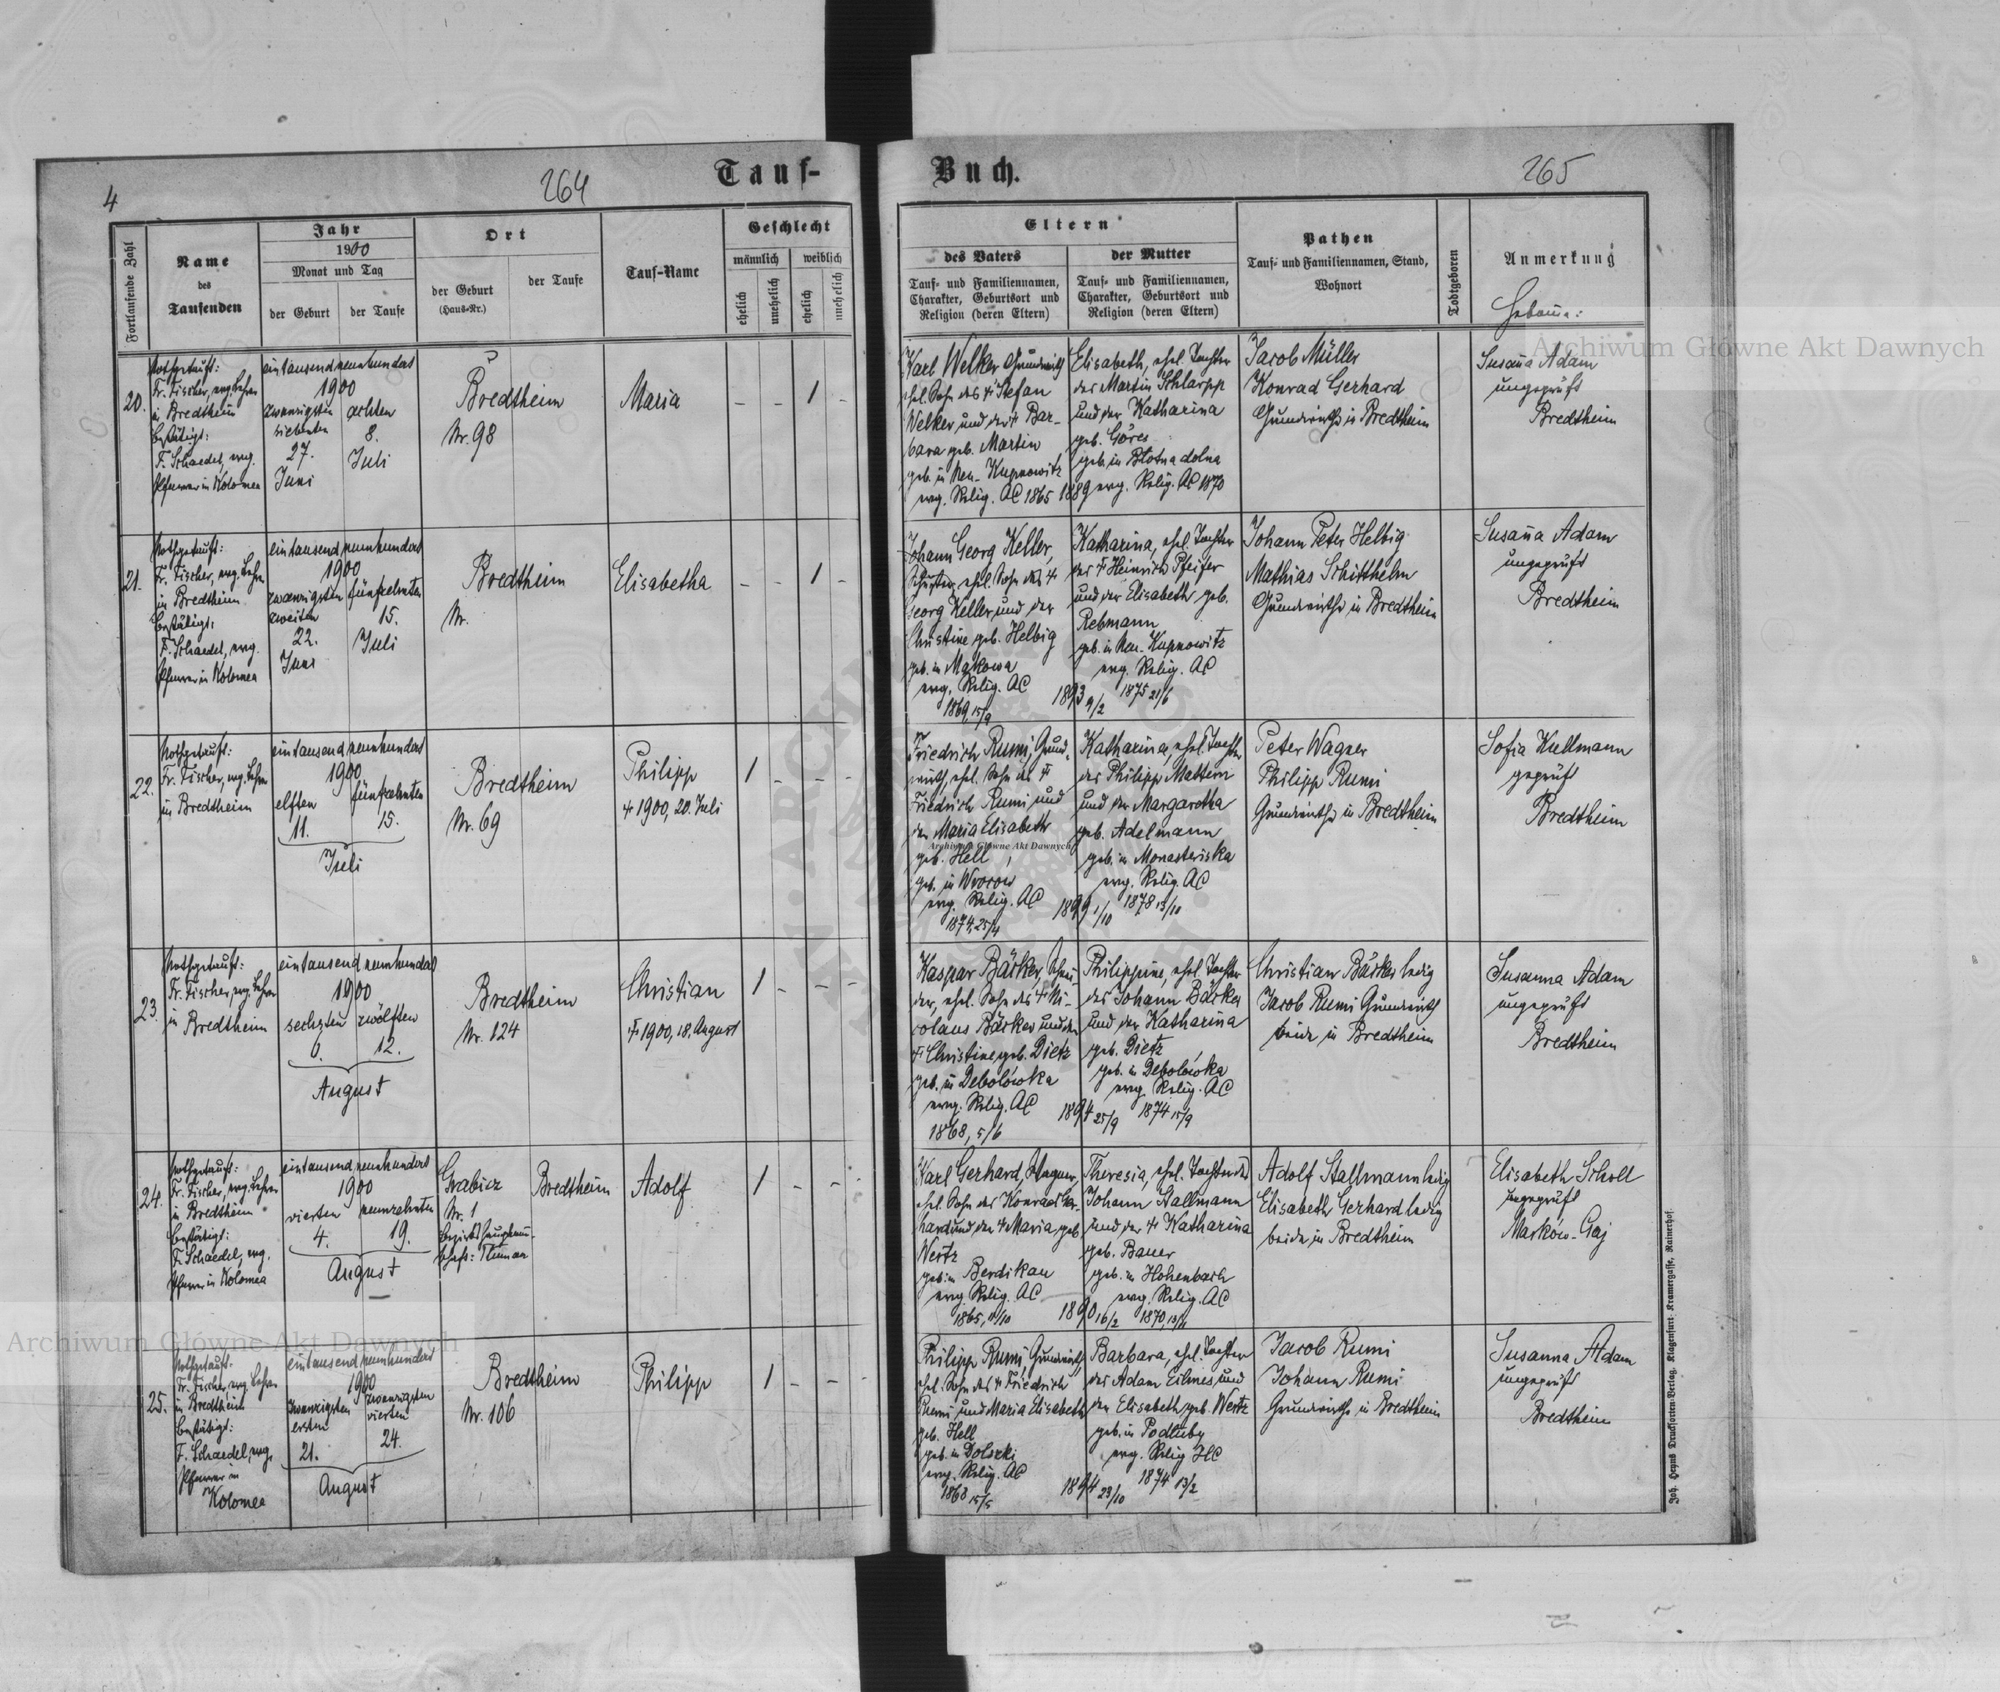 4
264
Tauf-
Buch.
265
Fortlaufende Zahl
Name
des
Taufenden
Jahr
1900
Monat und Tag
der Geburt
der Taufe
Ort
der Geburt
(Haus-Nr.)
der Taufe
Tauf-Name
Geschlecht
männlich
weiblich
ehelich
unehelich
ehelich
unehelich
Eltern
des Vaters
Tauf- und Familiennamen,
Charakter, Geburtsort und
Religion (deren Eltern)
der Mutter
Tauf- und Familiennamen,
Charakter, Geburtsort und
Religion (deren Eltern)
Pathen
Tauf- und Familiennamen, Stand,
Wohnort
Todtgeboren
Anmerkung
20.
Nothgetauft:
Fr. Fischer, evg. Lehrer
in Bredtheim
bestätigt:
F. Schaedel, evg.
Pfarrer in Kolomea
eintausendneunhundert
1900
zwanzigsten
siebenten
27.
Juni
achten
8.
Juli
Bredtheim
Nr. 98
Maria
- - 1 -
Karl Welker Grundwirth
ehel. Sohn des † Stefan
Welker, und der † Bar-
bara geb. Martin
geb. in Neu-Kupnowitz
evg. Relig. AC 1865
1889
Elisabeth, ehel. Tochter
des Martin Schlarpp
und der Katharina
geb. Göres
geb. in Błotna dolna
evg. Relig. AC 1870
Jacob Müller
Konrad Gerhard
Grundwirthe in Bredtheim
Susaña Adam
ungeprüft
Bredtheim
21.
Nothgetauft:
Fr. Fischer, evg. Lehrer
in Bredtheim
bestätigt:
F. Schaedel, evg.
Pfarrer in Kolomea
eintausendneunhundert
1900
zwanzigsten
zweiten
22.
Juni
fünfzehnten
15.
Juli
Bredtheim
Nr.
Elisabetha
- - 1 -
Johann Georg Keller,
Schuster, ehel. Sohn des †
Georg Keller, und der
Christine geb. Helbig
geb. in Makowa
evg. Relig. AC
1869, 15/9
1893 9/2
Katharina, ehel. Tochter
des † Heinrich Pfeifer
und der Elisabeth geb.
Rebmann
geb. in Neu-Kupnowitz
evg. Relig. AC
1875 21/6
Johann Peter Helbig
Mathias Schitthelm
Grundwirthe in Bredtheim
Susaña Adam
ungeprüft
Bredtheim
22.
Nothgetauft:
Fr. Fischer, evg. Lehrer
in Bredtheim
eintausendneunhundert
1900
elften
11.
fünfzehnten
15.
Juli
Bredtheim
Nr. 69
Philipp
† 1900, 20. Juli
1 - - -
Friedrich Rumi, Grund-
wirth, ehel. Sohn des †
Friedrich Rumi und
der Maria Elisabeth
geb. Hell
geb. in
evg. Relig. AC
1874, 25/4
1899 1/10
Katharina, ehel. Tochter
des Philipp Mattern
und der Margaretha
geb. Adelmann
geb. in Monasteriska
evg. Relig. AC
1878 13/10
Peter Wagner
Philipp Rumi
Grundwirthe in Bredtheim
Sofia Kullmann
geprüft
Bredtheim
23.
Nothgetauft:
Fr. Fischer, evg. Lehrer
in Bredtheim
eintausendneunhundert
1900
sechsten
6.
zwölften
12.
August
Bredtheim
Nr. 124
Christian
† 1900, 18. August
1 - - -
Kaspar Bäsker, Schnei-
der, ehel. Sohn des † Ni-
colaus Bäsker und der
† Christine geb. Dietz
geb. in Debolówka
evng. Relig. AC
1868, 5/6
1894 25/9
Philippine, ehel. Tochter
des Johann Bäsker
und der Katharina
geb. Dietz
geb. in Debolówka
evng. Relig. AC
1874 15/9
Christian Bäsker ledig
Jacob Rumi Grundwirth
beide in Bredtheim
Susanna Adam
ungeprüft
Bredtheim
24.
Nothgetauft:
Fr. Fischer, evg. Lehrer
in Bredtheim
bestätigt:
F. Schaedel, evg.
Pfarrer in Kolomea
eintausendneunhundert
1900
vierten
4.
neunzehnten
19.
August
Grabicz
Nr. 1
Bezirkshauptman-
schaft: Tłumacz
Bredtheim
Adolf
1 - - -
Karl Gerhard,
ehel. Sohn des Konrad Ger-
hard und der † Maria, geb.
Wertz
geb. in Berdikau
evg. Relig. AC
1890 16/2
Theresia, ehel. Tochter des
Johann Stallmann
und der † Katharina
geb. Bauer
geb. in Hohenbach
evg. Relig. AC
Adolf Stallmann ledig
Elisabeth Gerhard ledig
beide in Bredtheim
Elisabeth Scholl
ungeprüft
Markow-Gaj
25.
Nothgetauft:
Fr. Fischer, evg. Lehrer
in Bredtheim
bestätigt:
F. Schaedel, evg.
Pfarrer in
Kolomea
eintausendneunhundert
1900
zwanzigsten
ersten
21.
zwanzigsten
vierten
24.
August
Bredtheim
Nr. 106
Philipp
1 - - -
Philipp Rumi, Grundwirth
ehel. Sohn des † Friedrich
Rumi und Maria Elisabeth
geb. Hell
geb. in Dolszki
evg. Relig. AC
1863 15/5
1894 23/10
Barbara, ehel. Tochter
des Adam Eilmes, und
der Elisabeth, geb. Wertz
geb. in Podluby
evg. Relig HC
1874 13/2
Jacob Rumi
Johann Rumi
Grundwirthe in Bredtheim
Susanna Adam
ungeprüft
Bredtheim
Joh. Heyn's Drucksorten-Verlag, Klagenfurt, Kramergasse, Rainerhof.
Archiwum Główne Akt Dawnych
Archiwum Główne Akt Dawnych
Archiwum Główne Akt Dawnych